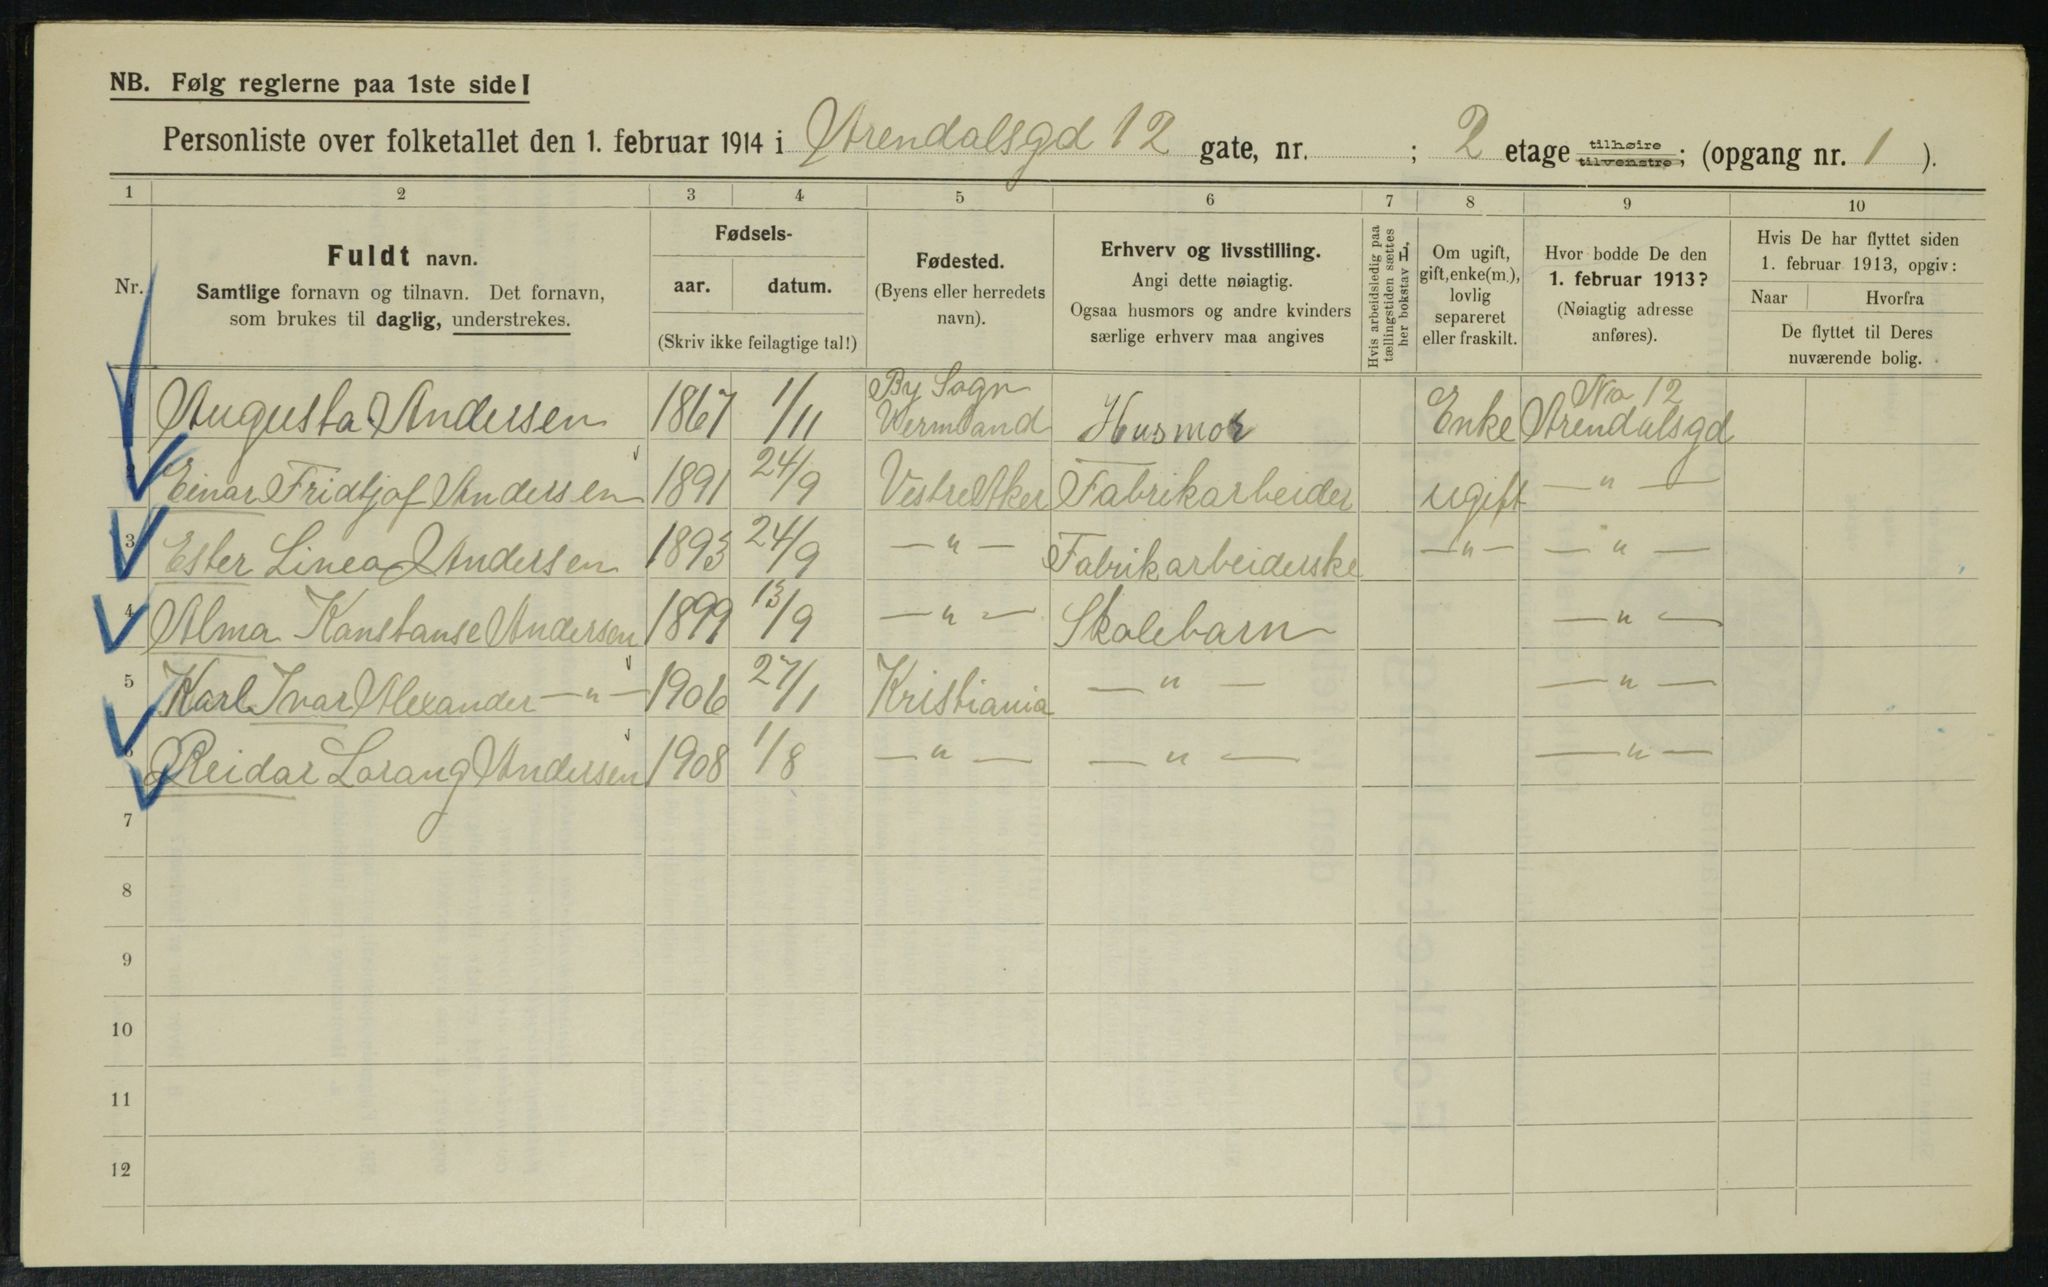 NB. Følg reglerne paa 1ste side!
Personliste over folketallet den 1. februar 1914 i Arendalsgd 12 gate, nr. ; 2 etage tilhøire tilvenstre; (opgang nr. 1 ).
1 2 3 4 5 6 7 8 9 10
Nr.
Fuldt navn.
Samtlige fornavn og tilnavn. Det fornavn,
som brukes til daglig, understrekes.
Fødsels-
aar. datum.
(Skriv ikke feilagtige tal!)
Fødested.
(Byens eller herredets
navn).
Erhverv og livsstilling.
Angi dette nøiagtig.
Ogsaa husmors og andre kvinders
særlige erhverv maa angives
Hvis arbeidsledig paa
tællingstiden sættes
her bokstav L,
Om ugift,
gift, enke(m.),
lovlig
separeret
eller fraskilt.
Hvor bodde De den
1. februar 1913?
(Nøiagtig adresse
anføres).
Hvis De har flyttet siden
1. februar 1913, opgiv:
Naar Hvorfra
De flyttet til Deres
nuværende bolig.
1 Augusta Andersen 1867 1/11 By Sogn Wermland Husmor Enke No 12 Arendalsgd
2 Einar Fridtjof Andersen 1891 24/9 Vestre Aker Fabrikarbeider ugift — " —
3 Ester Linea Andersen 1893 24/9 — " — Fabrikarbeiderske — " — — " —
4 Alma Konstanse Andersen 1899 13/9 — " — Skolebarn — " —
5 Karl Ivar Alexander — " — 1906 27/1 Kristiania — " — — " —
6 Reidar Lorang Andersen 1908 1/8 — " — — " — — " —
7
8
9
10
11
12